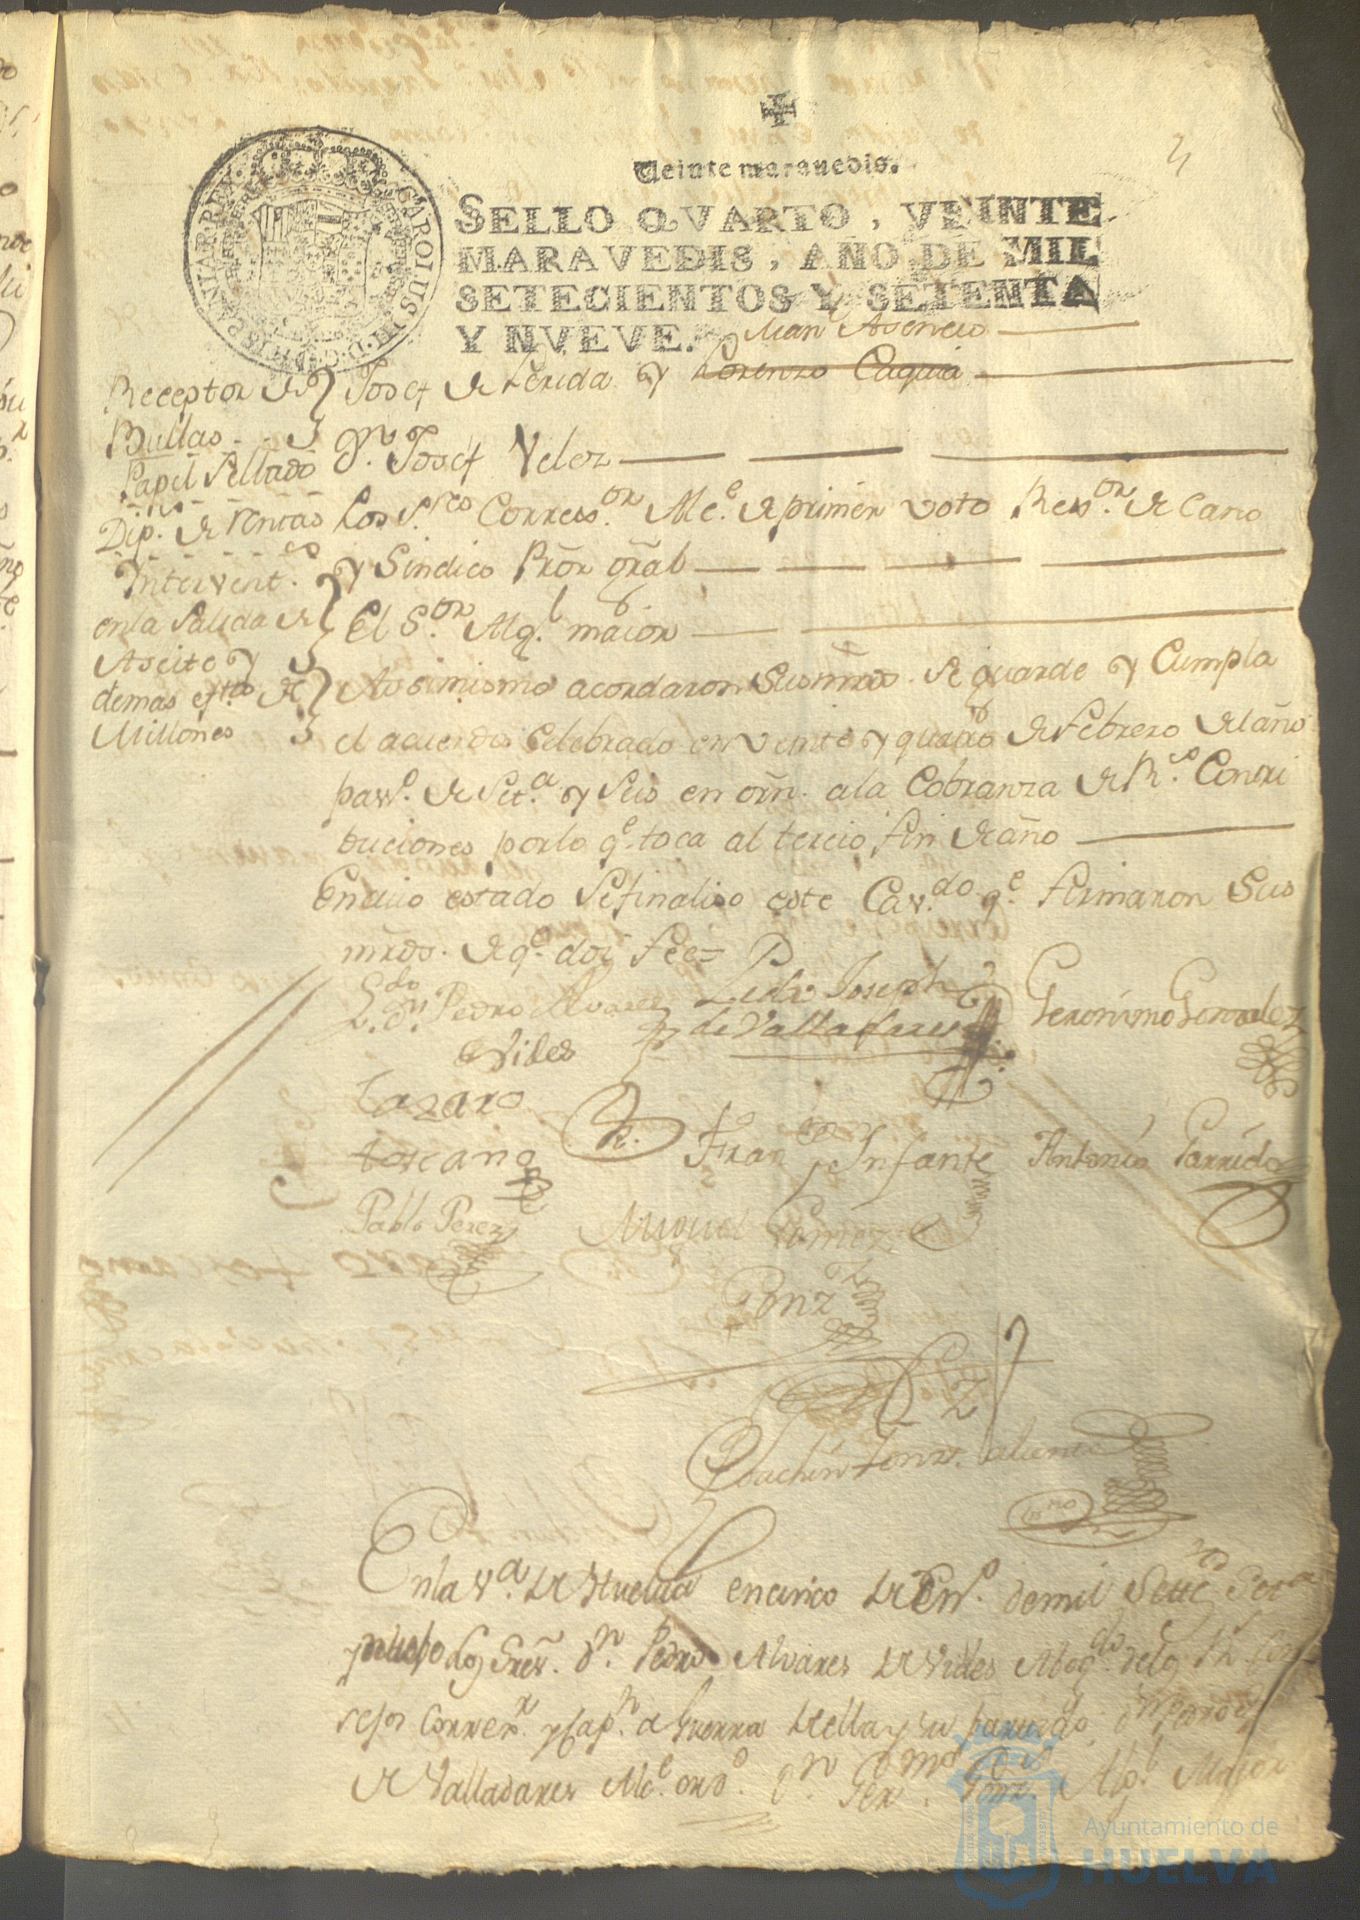 4
Veinte maravedis.
SELLO QVARTO, VEINTE
MARAVEDIS, AÑO DE MIL
SETECIENTOS Y SETENTA
Y NVEVE.
CAROLUS III D. G. HISPANIAR. REX
Man.l Asencio
Receptor de Josef de Lerida y Lorenzo Caquia
Bullas
Papel Sellado D.n Josef Velez
Dip.s de rentas Los S.res Corregs.or Alc.e de primer voto Regs.or de cano
y Sindico Prõr gr̃al
Intervent.
en la salida de El S.or Alg.l maior
Aseite y
demas ef.tos de Asimismo acordaron Sus mr̃dˢ. se guarde y Cumpla
Millones el acuerdo Celebrado en veinte y quatro de Febrero del año
pas.o de Set.a y Seis en orñ. a la Cobranza de R.s Contri
buciones por lo q.e toca al tercio fin de año
En cuio estado se finaliso este Cav.do q.e firmaron Sus
mr̃ds. de q.e doi fee=
L.do D.n Pedro Alvarez
de Vides
Pedro Joseph
de Valladares
Geronimo Gonzalez
Lazaro
toscano
Fran.co Infante
Antonio Garrido
Pablo Perez
Miguel Gomez
Gonz.z
Joachin Gonz.
En la v.a de Huelva en cinco de En.o de mil Sette.tos Set.a
y nuebe los Sres. D.n Pedro Alvares de Vides Abog.do de los R.s Con
sejos Correx.r y Cap.n a Guerra de ella y su partido D.n Pedro
de Valladares Alc.e ord.o D.n Ger.mo Gonz. Alg.l Maior
Ayuntamiento de
HUELVA